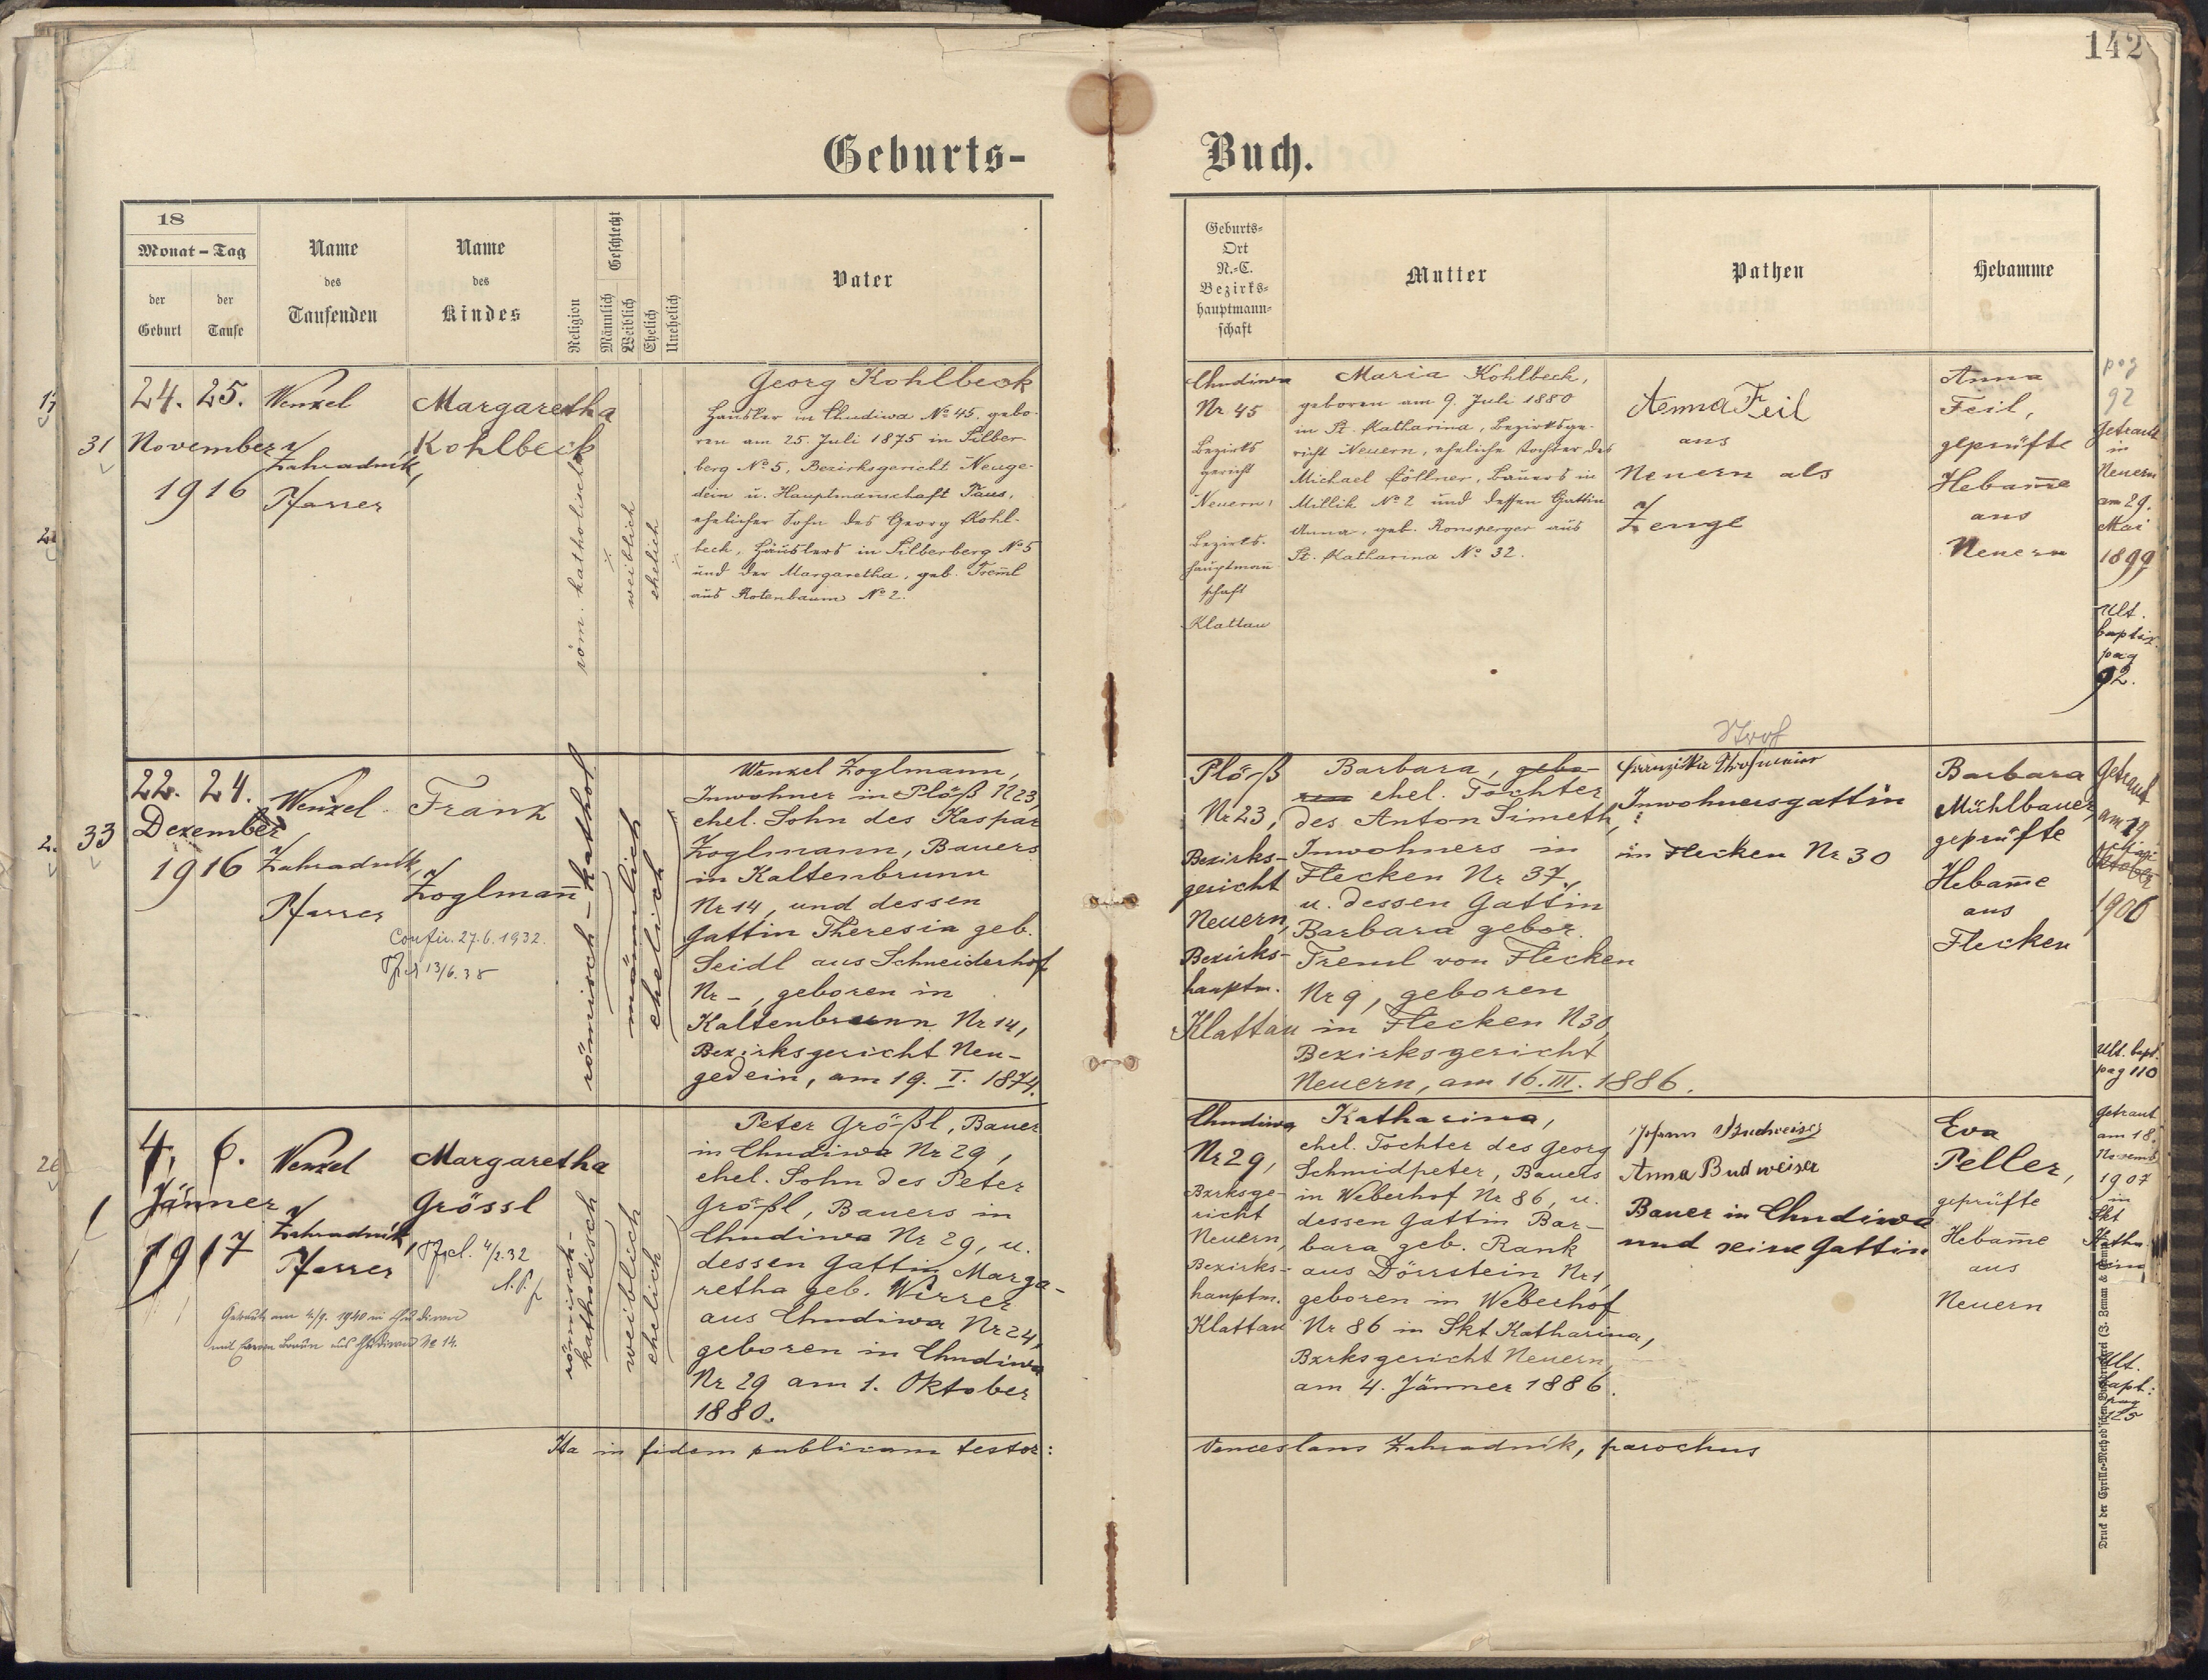 142
Geburts-
Buch.
18
Monat – Tag
der
Geburt
der
Taufe
Name
des
Taufenden
Name
des
Kindes
Religion
Geschlecht
Männlich
Weiblich
Ehelich
Unehelich
Vater
Geburts-
Ort
N.-C.
Bezirks-
hauptmann-
schaft
Mutter
Pathen
Hebamme
31
24. 25.
November
1916
Wenzel
Zahradník,
Pfarrer
Margaretha
Kohlbeck
röm. katholisch
weiblich
ehelich
Georg Kohlbeck
Häusler in Chudiwa No 45. gebo-
ren am 25. Juli 1875 in Silber-
berg No 5, Bezirksgericht Neuge-
dein u. Hauptmanschaft Taus,
ehelicher Sohn des Georg Kohl-
beck, Häuslers in Silberberg No 5
und der Margaretha, geb. Treml
aus Rotenbaum No 2.
Chudiwa
Nr. 45
Bezirks
gericht
Neuern,
Bezirks-
hauptman
schaft
Klattau
Maria Kohlbeck,
geboren am 9. Juli 1880
in St. Katharina, Bezirksge-
richt Neuern, eheliche Tochter des
Michael Zöllner, Bauers in
Millik No 2 und dessen Gattin
Anna, geb. Ronsperger aus
St. Katharina No 32.
Anna Feil
aus
Neuern als
Zeuge
Anna
Feil,
geprüfte
Hebam̅e
aus
Neuern
pag
92
Getraut
in
Neuern
am 29.
Mai
1899
Ult.
baptiz.
pag
92.
33
22. 24.
Dezember
1916
Wenzel
Zahradník,
Pfarrer
Franz
Zoglman̅
Confir. 27.6.1932.
13/6.38
römisch-kathol
männlich
ehelich
Wenzel Zoglmann,
Inwohner in Plöß N 23,
ehel. Sohn des Kaspar
Zoglmann, Bauers
in Kaltenbrunn
Nr 14, und dessen
Gattin Theresia geb.
Seidl aus Schneiderhof
Nr –, geboren in
Kaltenbrunn Nr 14,
Bezirksgericht Neu-
gedein, am 19. I. 1874.
Plöß
Nr 23,
Bezirks-
gericht
Neuern,
Bezirks-
hauptm.
Klattau
Barbara, gebo-
ren ehel. Tochter
des Anton Simeth,
Inwohners in
Flecken Nr 37,
u. dessen Gattin
Barbara gebor.
Treml von Flecken
Nr 9, geboren
in Flecken N 30,
Bezirksgericht
Neuern, am 16. III. 1886.
Strof
Franziska Strohmeier
Inwohnersgattin
in Flecken Nr 30
Barbara
Mühlbauer,
geprüfte
Hebam̅e
aus
Flecken
Getraut
am 19
Oktober
1906
Ult. bapt.
pag 110
1
4. 6.
Jänner
1917
Wenzel
Zahradník,
Pfarrer
Margaretha
Grössl
4/2.32
Getraut am 4/9. 1940 in Chudiwa
römisch-
katholisch
weiblich
ehelich
Peter Größl, Bauer
in Chudiwa Nr 29,
ehel. Sohn des Peter
Größl, Bauers in
Chudiwa Nr 29, u.
dessen Gattin Marga-
retha geb. Wirrer
aus Chudiwa Nr 24,
geboren in Chudiwa
Nr 29 am 1. Oktober
1880.
Chudiwa
Nr 29,
Bzrksge-
richt
Neuern,
Bezirks-
hauptm.
Klattau
Katharina,
ehel. Tochter des Georg
Schmidpeter, Bauers
in Weberhof Nr 86, u.
dessen Gattin Bar-
bara geb. Rank
aus Dörrstein Nr 1,
geboren in Weberhof
Nr 86 in Skt Katharina,
Bzrksgericht Neuern,
am 4. Jänner 1886.
Johann Budweiser
Anna Budweiser
Bauer in Chudiwa
und seine Gattin
Eva
Peller,
geprüfte
Hebam̅e
aus
Neuern
Getraut
am 18.
Novemb
1907
in
Skt
Katha
rina
Ult.
bapt:
pag
125
Ita in fidem publicam testor:
Venceslaus Zahradník, parochus
Druck der Cyrillo-Method'schen Buchdruckerei